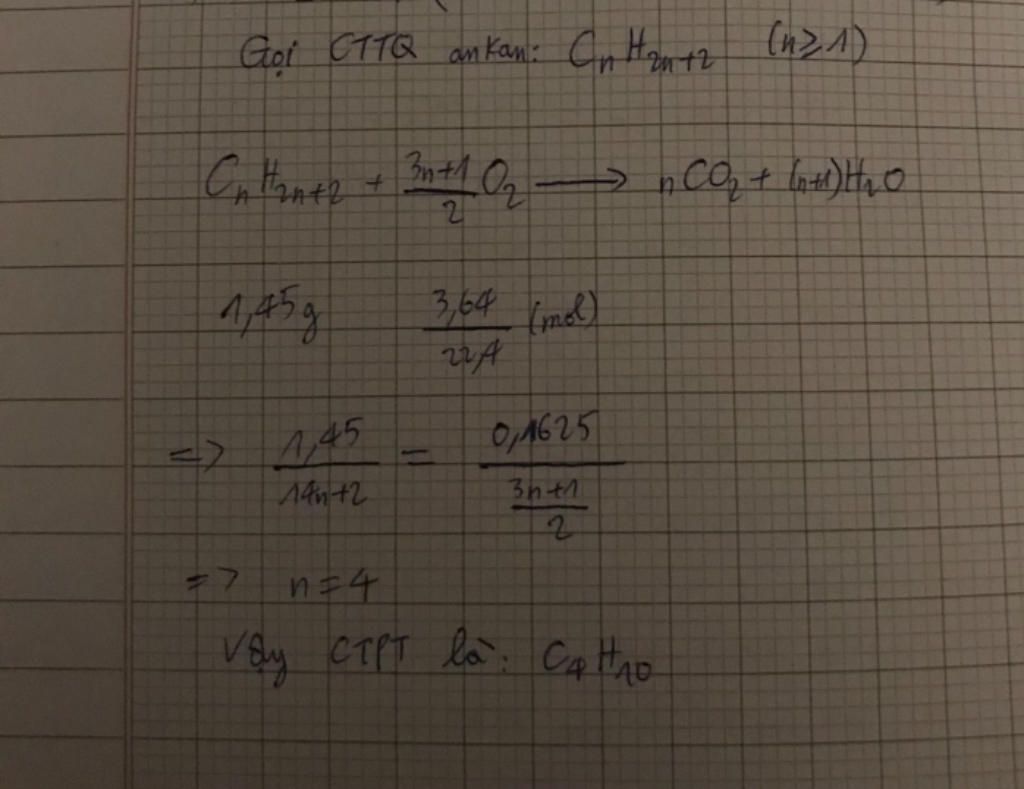 Gọi CTTQ ankan: CnH2n+2 (n≥1)
CnH2n+2 + (3n+1)/2 O2 ⟶ nCO2 + (n+1)H2O
1,45g 3,64/22,4 (mol)
=> 1,45/(14n+2) = 0,1625/((3n+1)/2)
=> n=4
Vậy CTPT là: C4H10